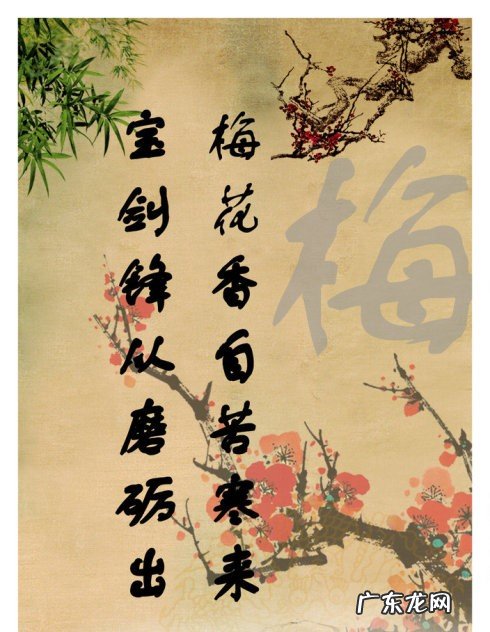 宝剑锋从磨砺出
梅花香自苦寒来
梅
广东龙网